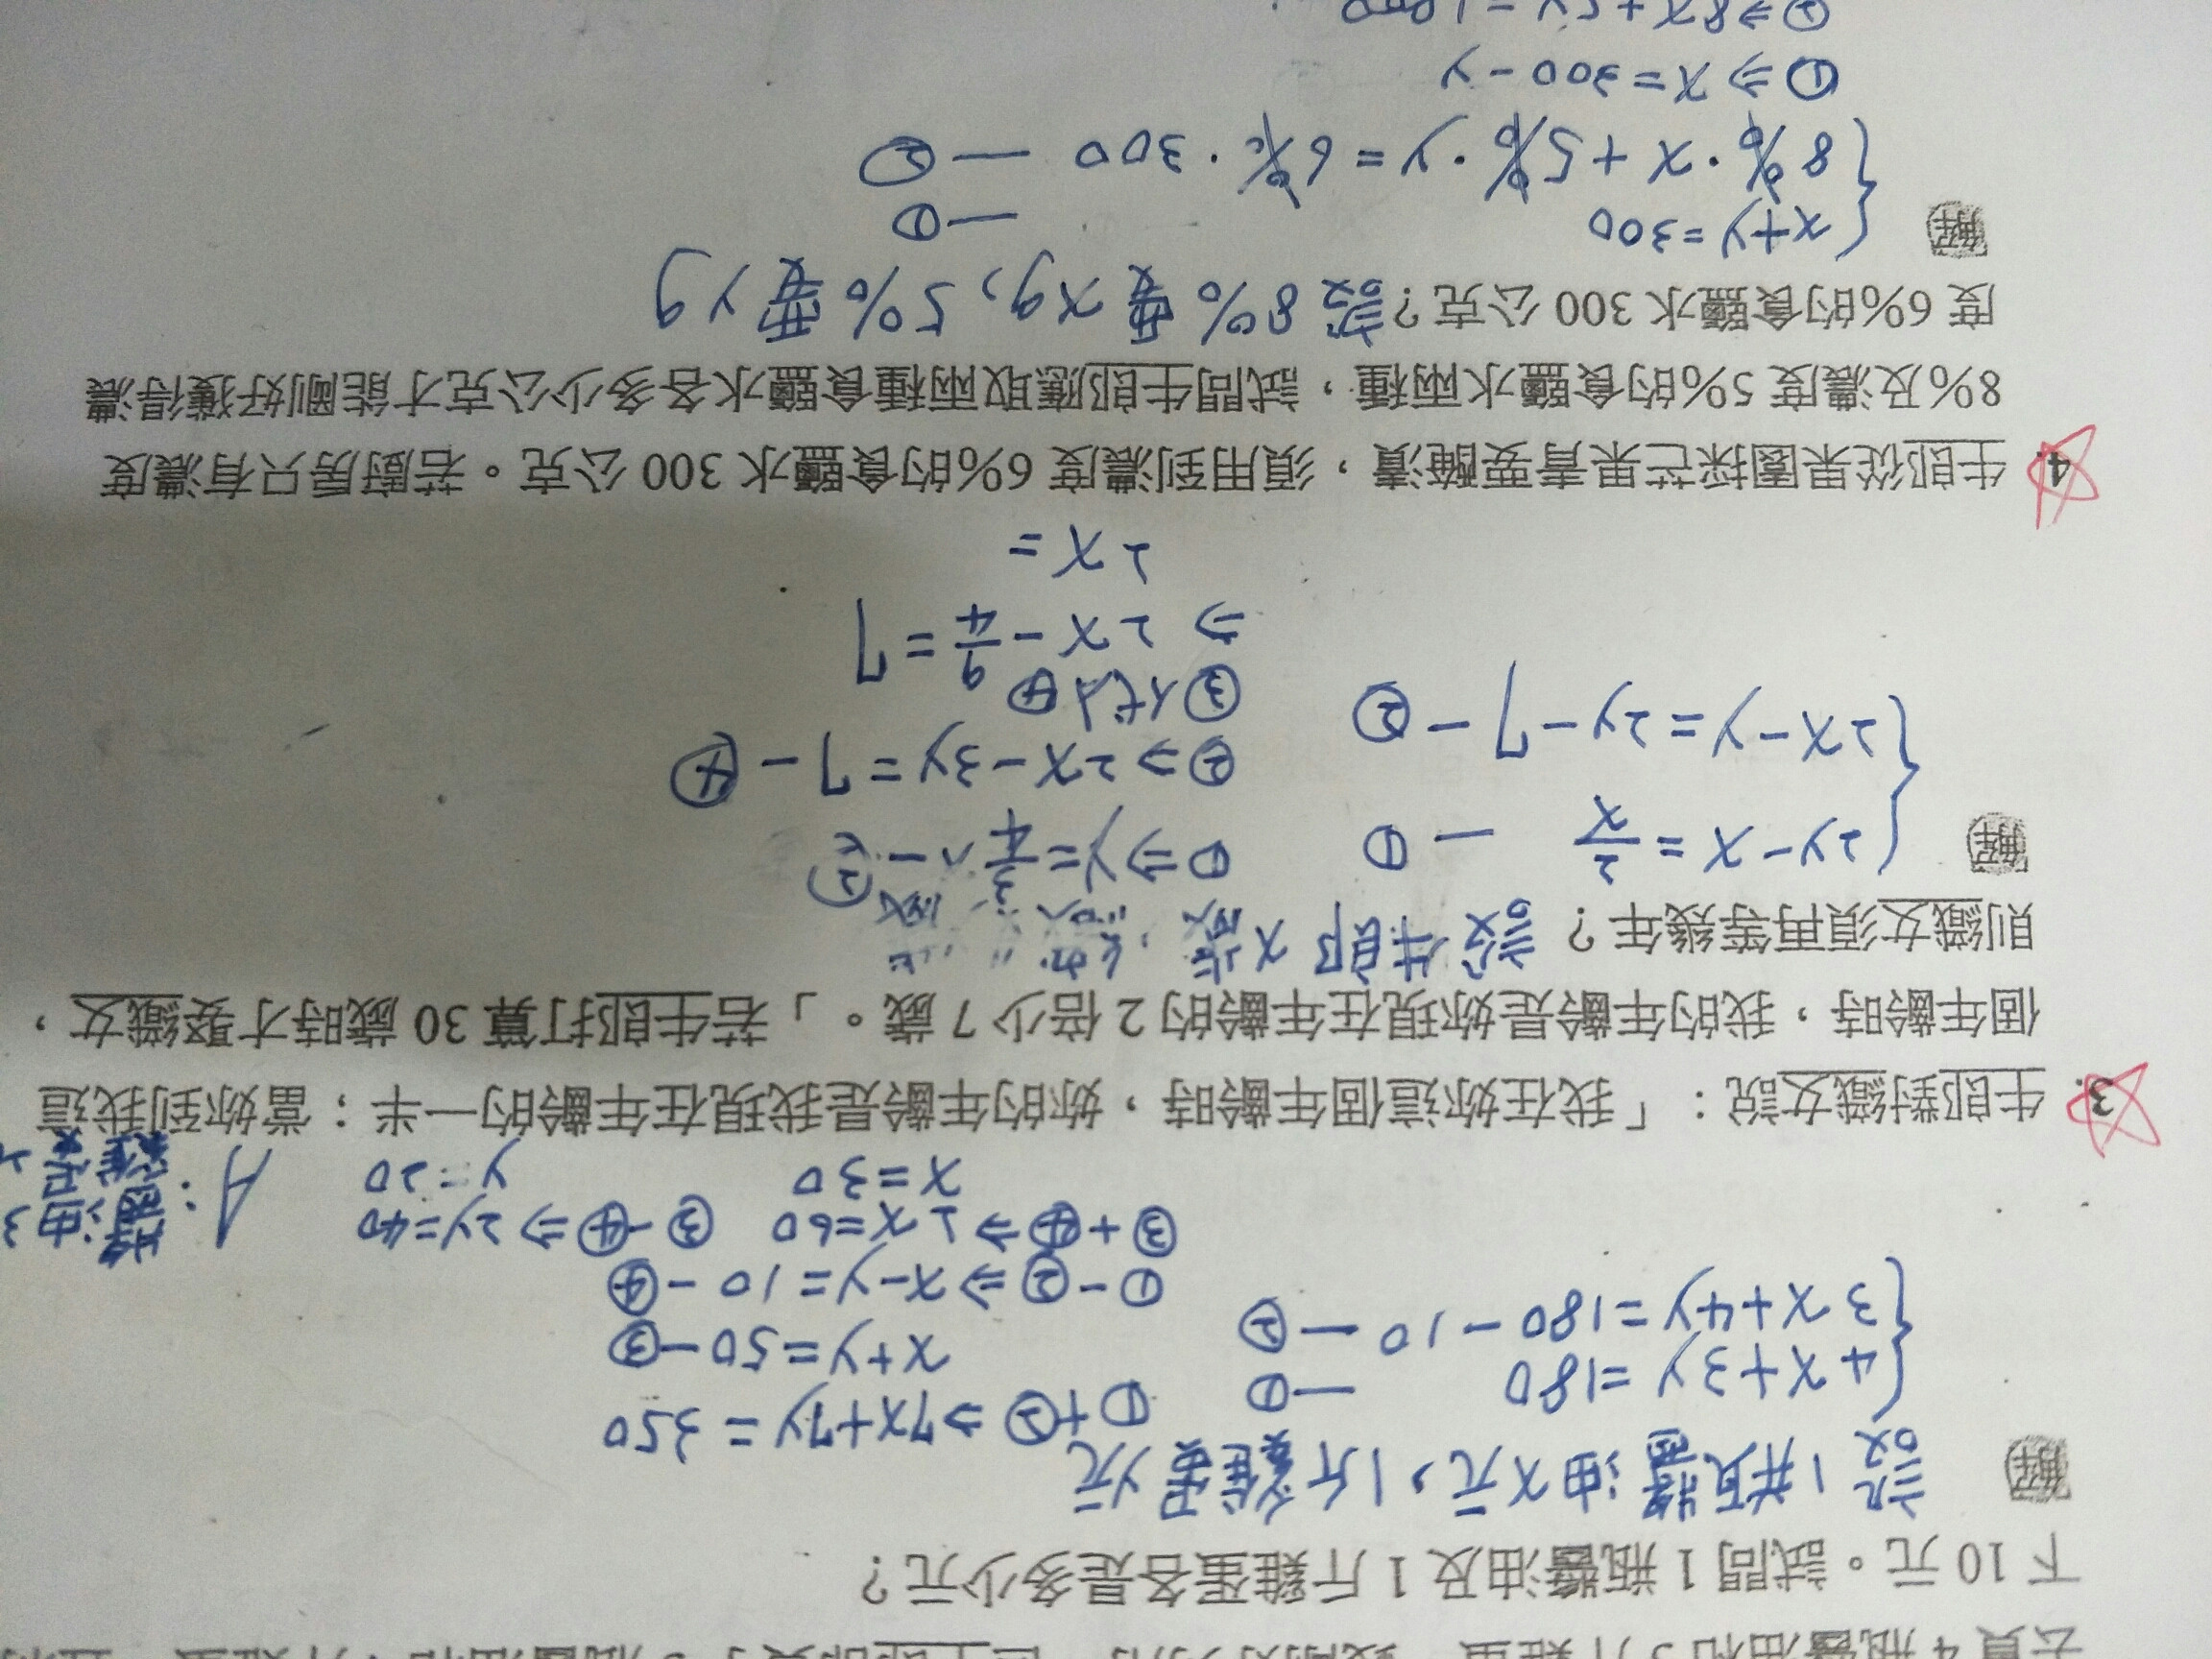 下 10 元。試問 1 瓶醬油及 1 斤雞蛋各是多少元?
解 設 1 瓶醬油 x 元, 1 斤雞蛋 y 元
4x+3y=180 —①
3x+4y=180-10 —②
①+② ⇒ 7x+7y=350
x+y=50 —③
①-② ⇒ x-y=10 -④
③+④ ⇒ 2x=60 ③-④ ⇒ 2y=40
x=30 y=20
A: 醬油 3
雞蛋 2
3. 牛郎對織女說:「我在妳這個年齡時,妳的年齡是我現在年齡的一半;當妳到我這
個年齡時,我的年齡是妳現在年齡的 2 倍少 7 歲。」若牛郎打算 30 歲時才娶織女,
則織女須再等幾年? 設牛郎 x 歲,
解 2y-x=x/2 —①
2x-y=2y-7 -②
①⇒y=3/4
②⇒2x-3y=7-④
③代入④
⇒ 2x-9/4=7
2x=
4. 牛郎從果園採芒果青要醃漬,須用到濃度 6%的食鹽水 300 公克。若廚房只有濃度
8%及濃度 5%的食鹽水兩種,試問牛郎應取兩種食鹽水各多少公克才能剛好獲得濃
度 6%的食鹽水 300 公克? 設 8% 要 xg, 5% 要 yg
解 x+y=300 —①
8%·x+5%·y=6%·300 —②
①⇒x=300-y
②⇒8x+5y=1800